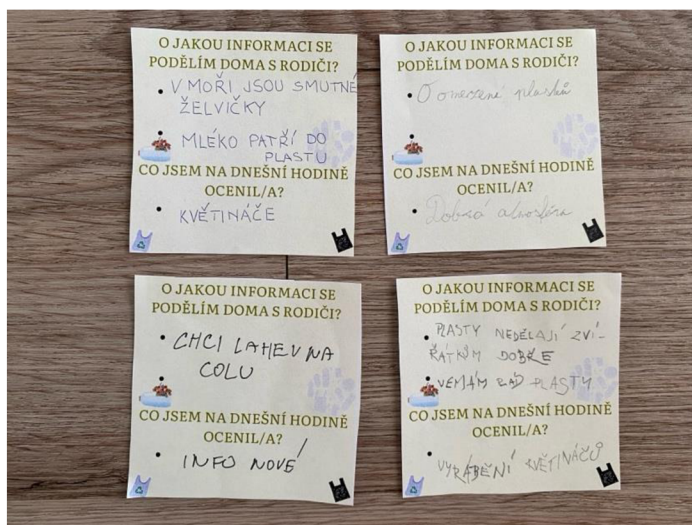 O JAKOU INFORMACI SE
PODĚLÍM DOMA S RODIČI?
• V MOŘI JSOU SMUTNÉ
ŽELVIČKY
• MLÉKO PATŘÍ DO
PLASTU
CO JSEM NA DNEŠNÍ HODINĚ
OCENIL/A?
• KVĚTINÁČE
O JAKOU INFORMACI SE
PODĚLÍM DOMA S RODIČI?
• O omezení plastů
CO JSEM NA DNEŠNÍ HODINĚ
OCENIL/A?
• Dobrá atmosféra
O JAKOU INFORMACI SE
PODĚLÍM DOMA S RODIČI?
• CHCI LAHEV NA
COLU
CO JSEM NA DNEŠNÍ HODINĚ
OCENIL/A?
• INFO NOVÉ
O JAKOU INFORMACI SE
PODĚLÍM DOMA S RODIČI?
• PLASTY NEDĚLAJÍ ZVÍ-
ŘÁTKŮM DOBŘE
• NEMÁM RÁD PLASTY
CO JSEM NA DNEŠNÍ HODINĚ
OCENIL/A?
• VYRÁBĚNÍ KVĚTINÁČŮ